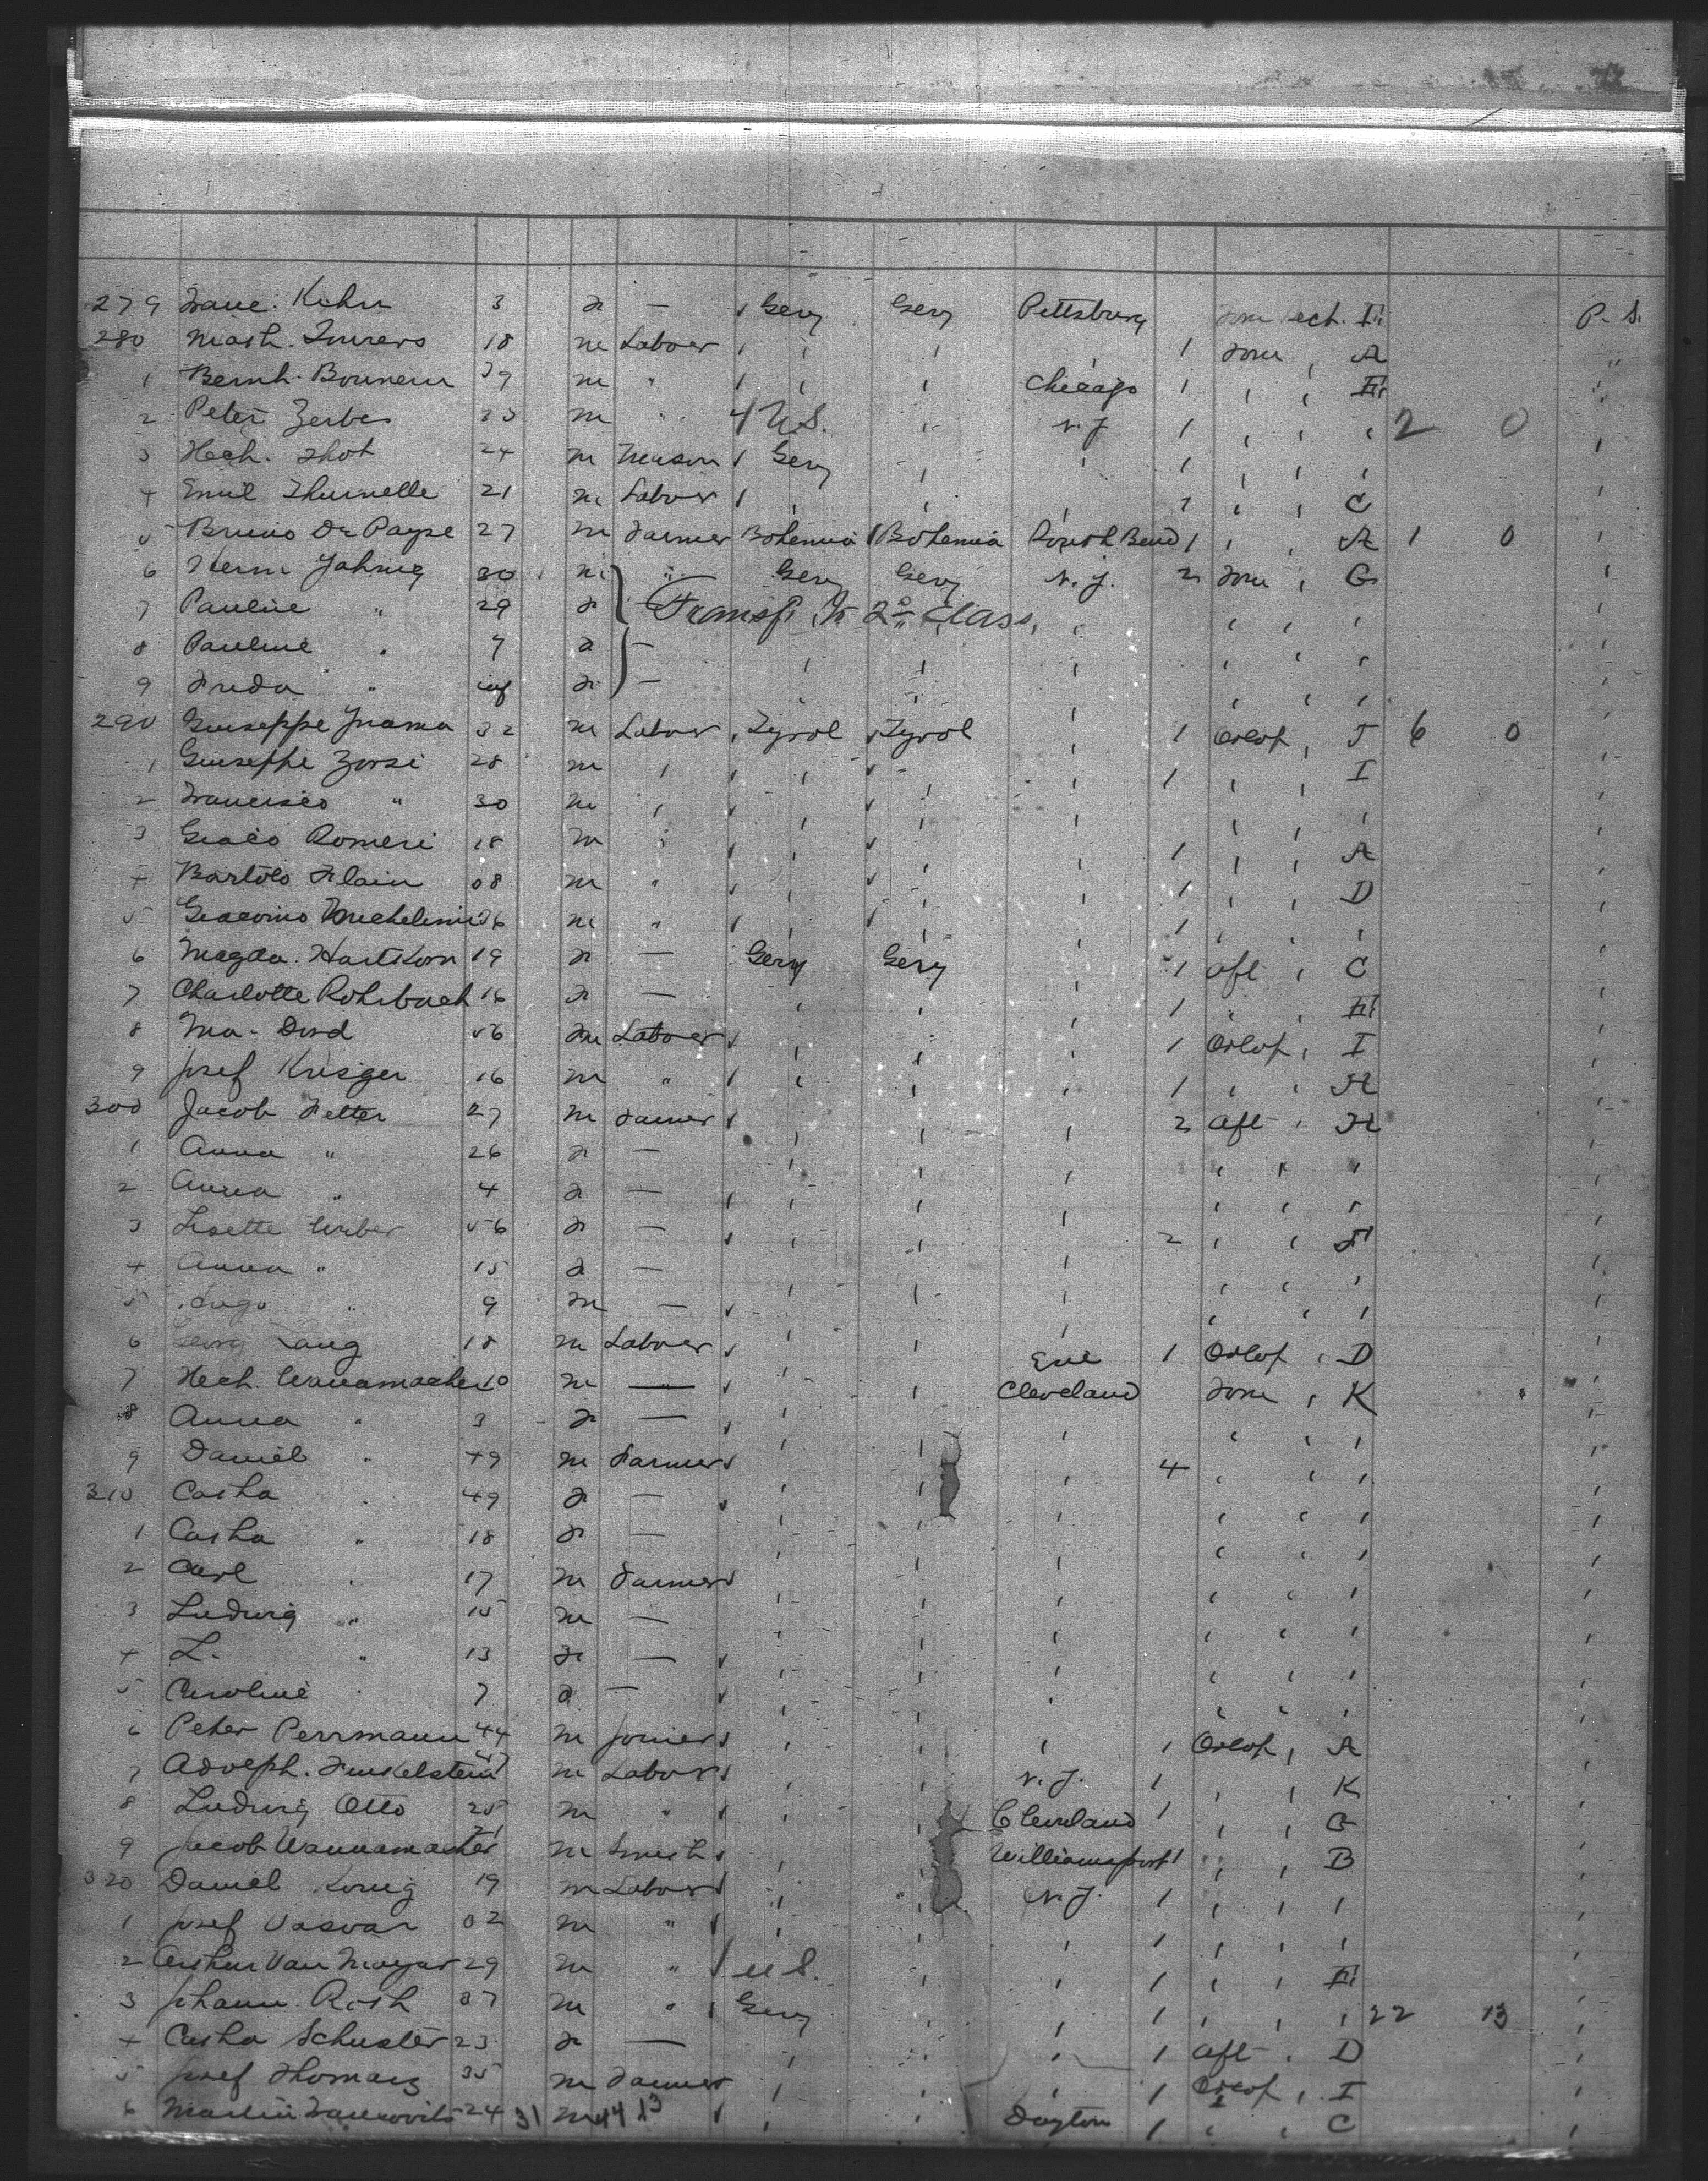 279 Kuhn 3 — Gery Gery Pittsburg P. S.
280 18 m Labover ' ' ' 1 A
1 Bernh. m " ' ' Chicago 1 ' '
2 Peter Zerbes m " U.S. ' N. J. 1 ' ' ' 2 0
3 Hech. 24 m Mason Gery ' ' 1 ' ' '
4 Emil Thurnelle 21 m Labover ' ' ' 1 ' ' C
5 Bruno De Payse 27 m Farmer Bohemia Bohemia South Bend 1 ' ' A 1 0
6 Herm Jahnig 30 m " Gery Gery N. J. 2 ' G
7 Pauline " 29 Transf. to 2d Class ' ' ' '
8 Pauline " 7 — ' ' ' ' ' '
9 Frida " inf — ' ' ' ' ' '
290 Giuseppe Inama 32 m Labover Tyrol Tyrol ' 1 Orlop ' 6 0
1 Giuseppe Zorsi 28 m ' ' ' ' 1 ' ' I
2 Francisco " 30 m ' ' ' ' ' ' '
3 Romeri 18 m ' ' ' ' 1 ' ' A
4 Bartolo m " ' ' ' 1 ' ' D
5 Giacomo Michelini 26 m " ' ' ' 1 ' ' '
6 Magda. Hartkorn 19 — Gery Gery ' 1 aft ' C
7 Charlotte Rohrbach 16 — ' ' ' 1 " '
8 56 m Labover ' ' ' 1 Orlop ' I
9 Josef Krieger 16 m " ' ' ' 1 ' ' H
300 Jacob Fetter 27 m Farmer ' ' ' 2 aft ' H
1 Anna " 26 — ' ' ' ' ' '
2 Anna " 4 — ' ' ' ' ' '
3 Lisette Weber 56 — ' ' ' 2 ' ' F
4 Anna " 15 — ' ' ' ' ' '
5 Hugo " 9 m — ' ' ' ' ' '
6 Georg Lang 18 m Labover ' ' Erie 1 Orlop ' D
7 Hech. Wannamacher 10 m — ' ' Cleveland ' K
8 Anna " 3 — ' ' ' ' ' '
9 Daniel " 49 m Farmer ' ' ' 4 ' ' '
310 Catha " 49 — ' ' ' ' ' '
1 Catha " 18 — ' ' ' ' ' '
2 Carl " 17 m Farmer ' ' ' ' ' '
3 Ludwig " 15 m — ' ' ' ' ' '
4 L. " 13 — ' ' ' ' ' '
5 Caroline " 7 — ' ' ' ' ' '
6 Peter Perrmann 44 m Joiner ' ' ' 1 Orlop ' A
7 Adolph. Finkelstein 47 m Labover ' ' N. J. 1 ' ' K
8 Ludwig Otto 25 m " ' ' Cleveland 1 ' ' G
9 Jacob Wannamacher 21 m Smith ' ' Williamsport 1 ' ' B
320 Daniel Konig 19 m Labover ' ' N. J. 1 ' ' '
1 Josef Vasvar m " ' ' ' 1 ' ' '
2 Arthur Van 29 m " U.S. ' ' 1 ' '
3 Johann Roth 37 m " Gery ' ' 1 ' ' ' 22 13
4 Catha Schuster 23 — ' ' ' 1 aft ' D
5 Josef Thomas 35 m Farmer ' ' ' 1 Orlop ' I
6 Martin 24 31 m 44 13 ' ' Dayton 1 ' ' C